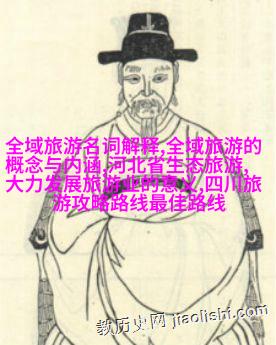 全域旅游名词解释,全域旅游的
概念与内涵,河北省生态旅游,
大力发展旅游业的意义,四川旅
游攻略路线最佳路线
教历史网 jiaolishi.com